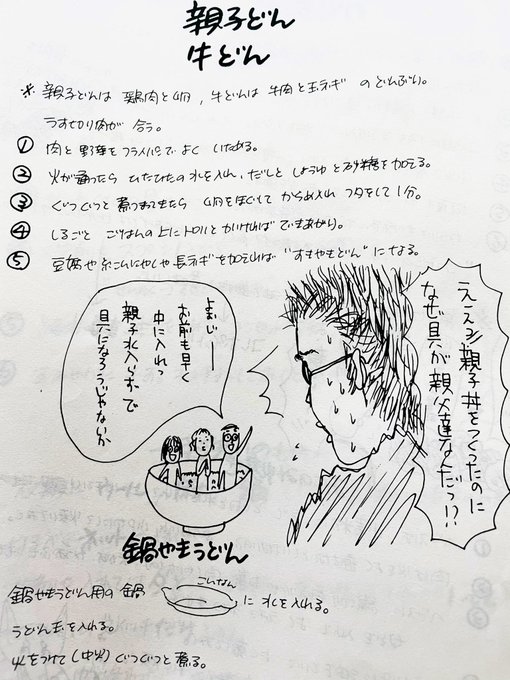 親子どん
牛どん
※ 親子どんは 鶏肉と卵, 牛どんは 牛肉と玉ネギ のどんぶり。
うす切り肉が 合う。
① 肉と 野菜を フライパンで よく いためる。
② 火が通ったら ひたひたの水を入れ、だしと しょうゆ と砂糖を加える。
③ ぐつぐつと 煮つまってきたら 卵をほぐして からめ入れ フタをして1分。
④ しるごと ごはんの上にトロリと かければ できあがり。
⑤ 豆腐や糸こんにゃくや長ネギを加えれば "すきやきどん" になる。
ええっ!親子丼をつくったのに
なぜ具が親父達なんだっ!?
よぉいじー
お前も早く
中に入れっ
親子水入らずで
具になろうじゃないか
鍋やきうどん
鍋やきうどん用の 鍋 に 水を入れる。
こんなん
うどん玉を入れる。
火をつけて(中火)ぐつぐつと煮る。